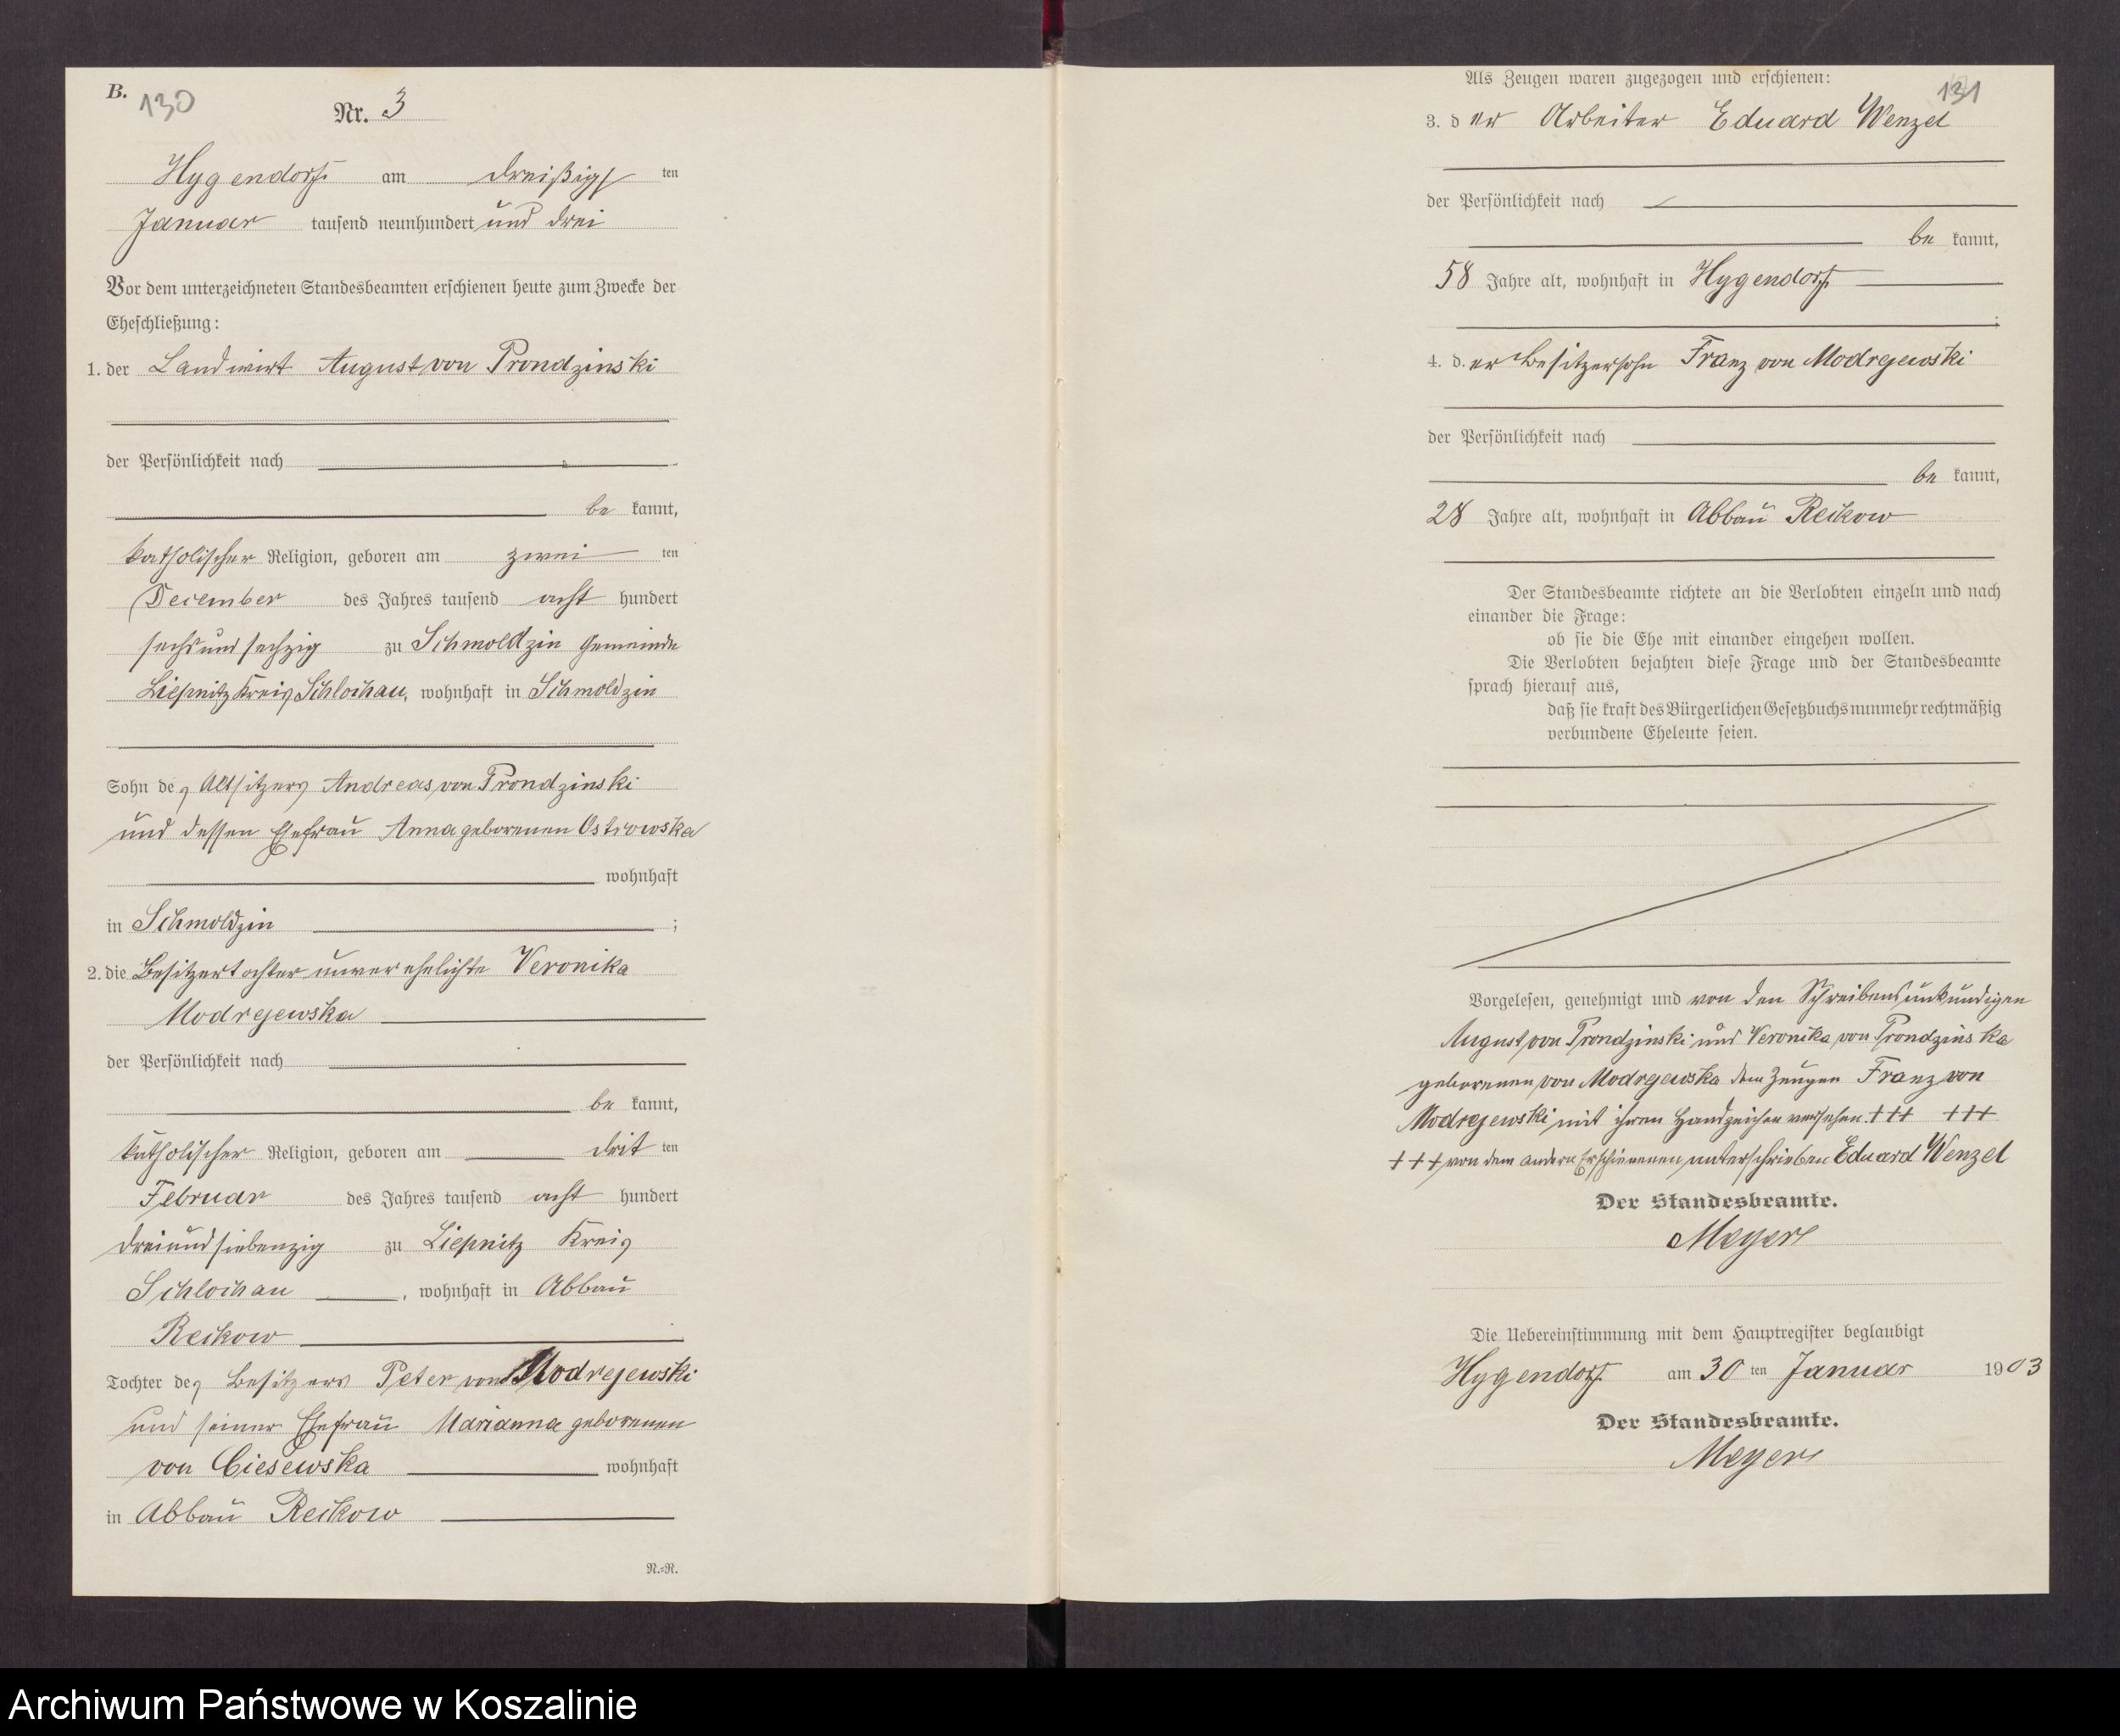 B.
130
Nr. 3
Hygendorf am dreißigs ten
Januar tausend neunhundert und drei
Vor dem unterzeichneten Standesbeamten erschienen heute zum Zwecke der
Eheschließung:
1. der Landwirt August von Prondzinski
der Persönlichkeit nach
be kannt,
katholischer Religion, geboren am zwei ten
December des Jahres tausend acht hundert
sechs und sechzig zu Schmoldzin Gemeinde
Liepnitz Kreis Schlochau, wohnhaft in Schmoldzin
Sohn des Altsitzers Andreas von Prondzinski
und dessen Ehefrau Anna geborenen Ostrowska
wohnhaft
in Schmoldzin ;
2. die Besitzertochter unverehelichte Veronika
Modrejewska
der Persönlichkeit nach
be kannt,
katholischer Religion, geboren am drit ten
Februar des Jahres tausend acht hundert
dreiundsiebenzig zu Liepnitz Kreis
Schlochau , wohnhaft in Abbau
Reckow
Tochter des Besitzers Peter von Modrejewski
und seiner Ehefrau Marianna geborenen
von Ciesewska wohnhaft
in Abbau Reckow
N.=N.
Als Zeugen waren zugezogen und erschienen:
131
3. d er Arbeiter Eduard Wenzel
der Persönlichkeit nach
be kannt,
58 Jahre alt, wohnhaft in Hygendorf
;
4. d. er Besitzersohn Franz von Modrejewski
der Persönlichkeit nach
be kannt,
28 Jahre alt, wohnhaft in Abbau Reckow
Der Standesbeamte richtete an die Verlobten einzeln und nach
einander die Frage:
ob sie die Ehe mit einander eingehen wollen.
Die Verlobten bejahten diese Frage und der Standesbeamte
sprach hierauf aus,
daß sie kraft des Bürgerlichen Gesetzbuchs nunmehr rechtmäßig
verbundene Eheleute seien.
Vorgelesen, genehmigt und von den Schreibensunkundigen
August von Prondzinski und Veronika von Prondzinska
geborenen von Modrejewska dem Zeugen Franz von
Modrejewski mit ihren Handzeichen versehen. +++ +++
+++ von dem andern Erschienenen unterschrieben Eduard Wenzel
Der Standesbeamte.
Meyer
Die Uebereinstimmung mit dem Hauptregister beglaubigt
Hygendorf am 30 ten Januar 1903
Der Standesbeamte.
Meyer
Archiwum Państwowe w Koszalinie